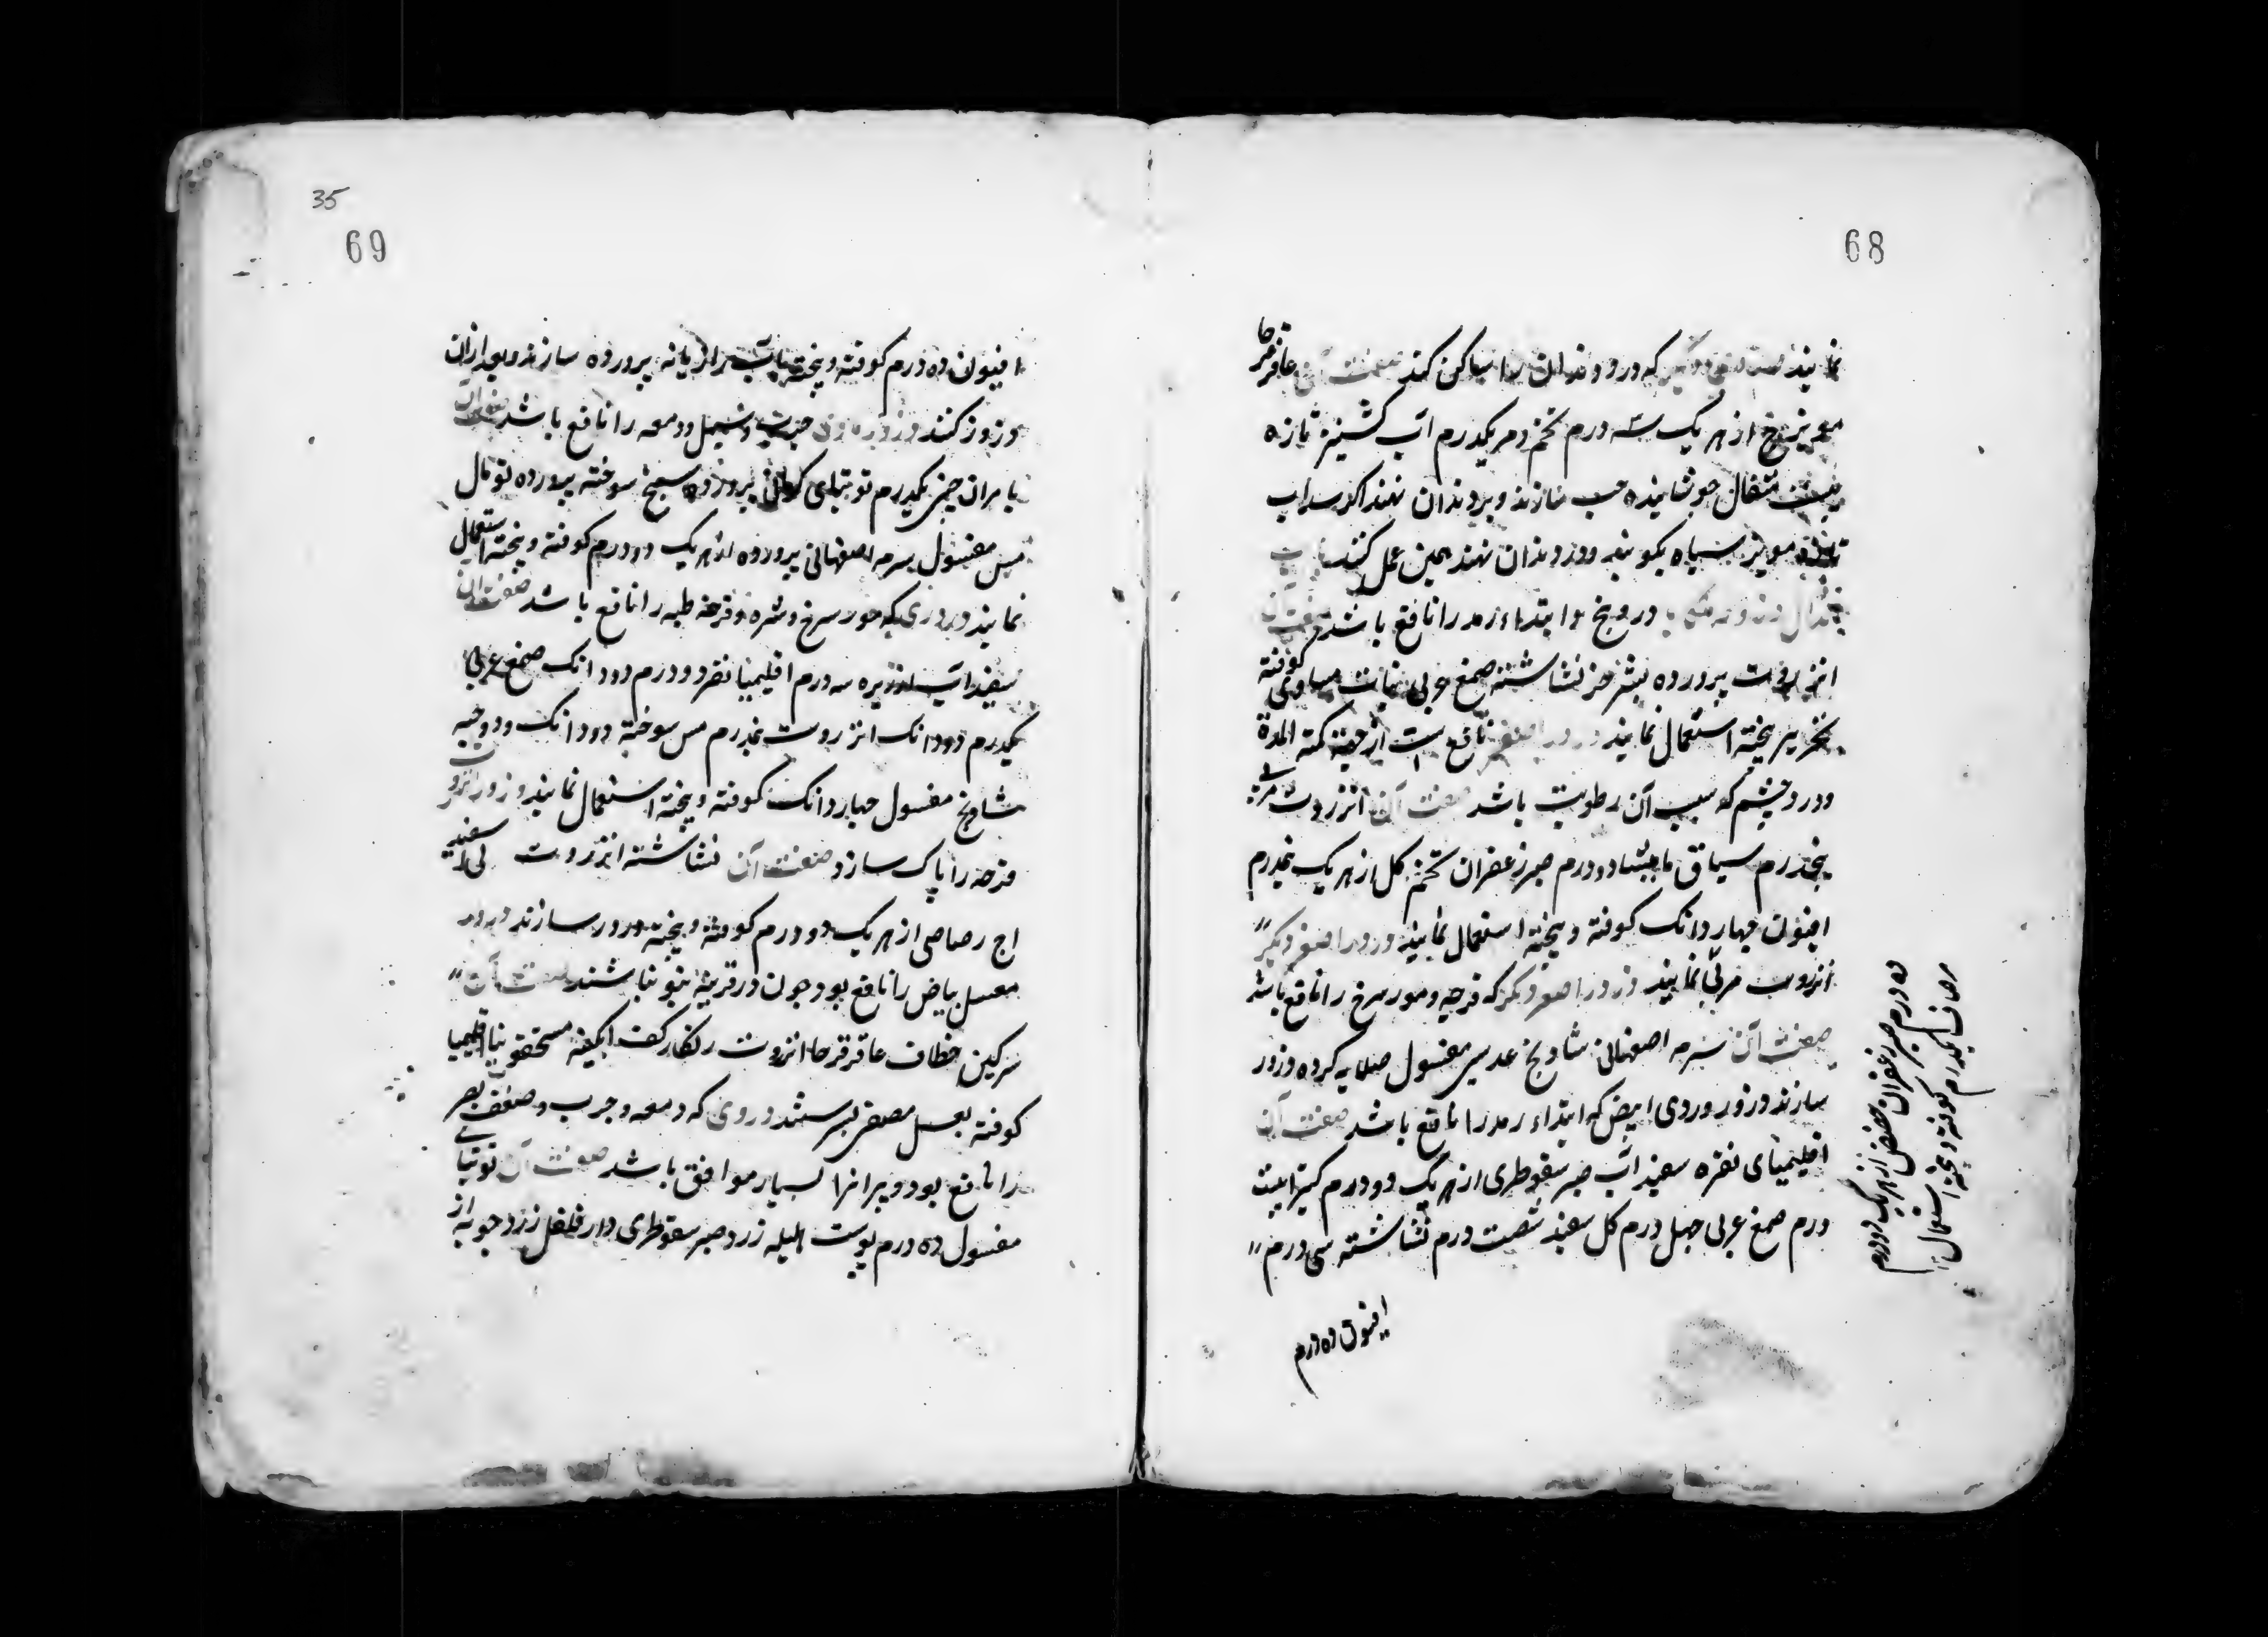 68
نمایند که درد دندان را ساکن کند صفت آن عاقرقرحا
مویزج از هر یک سه درم تخم دمر یکدرم آب کشنیز تازه
بیست مثقال جوشانیده حب سازند و بر دندان نهند اگر سداب
تازه و مویز سیاه بکوبند و در دندان نهند همین عمل کند
در و بخ و ابتداء رمد را نافع باشد صفت آن
انزروت پرورده بشیر خر نشاشته صمغ عربی نبات مساوی کوفته
بحریر بیخته استعمال نمایند ذرور اصفر نافع است از جهة کمنة المدة
و درد چشم که سبب آن رطوبت باشد صفت آن انزروت مربی
پنجدرم سیاق مامیثا دو درم صبر زعفران تخم کل از هر یک نیمدرم
افیون چهار دانک کوفته و بیخته استعمال نمایند ذرور اصفر دیگر
انزروت مربی نمایند ذرور اصفر دیگر که قرحه و مورسرخ را نافع باشد
صفت آن سرمه اصفهانی شادنج عدسی مغسول صلایه کرده ذرور
سازند ذرور وردی ابیض که ابتداء رمد را نافع باشد صفت آن
اقلیمیای نقره سفیداب صبر سقوطری از هر یک دو درم کتیرا بیست
درم صمغ عربی چهل درم کل سفید شصت درم نشاشته سی درم
افیون ده درم
ده درم صبر زعفران حضض از هر یک دو درم
یکدرم کوفته و بیخته استعمال
35
69
افیون ده درم کوفته و بیخته بآب رازیانه پرورده سازند و بعد از آن
ذرور کنند جرب و سبل و دمعه را نافع باشد صفت آن
مامیران چینی یکدرم توتیای کرمانی پرورده سبخ سوخته پرورده توبال
مس مغسول سرمه اصفهانی پرورده از هر یک دو درم کوفته و بیخته استعمال
نمایند وردی که مورسرخ و بثره و قرحه طبه را نافع باشد صفت آن
سفیداب ارزیز سه درم اقلیمیا نقره دو درم دو دانک صمغ عربی
یکدرم دو دانک انزروت نیمدرم مس سوخته دو دانک و دو حبه
شادنج مغسول چهار دانک کوفته و بیخته استعمال نمایند ذرور انزروت
قرحه را پاک سازد صفت آن نشاشته انزروت سفید
اج رصاصی از هر یک دو درم کوفته و بیخته ذرور سازند ذرور
معسل بیاض را نافع بود چون در قرنیه نتو نباشد صفت آن
سرکین خطاف عاقرقرحا انزروت زنکار کف ابکینه مسحقونیا اقلیمیا
کوفته بعسل مصفی بسرشند وردی که دمعه و جرب و ضعف بصر
را نافع بود و پیرانرا بسیار موافق باشد صفت آن توتیای
مغسول ده درم پوست هلیله زرد صبر سقوطری دار فلفل زردچوبه از